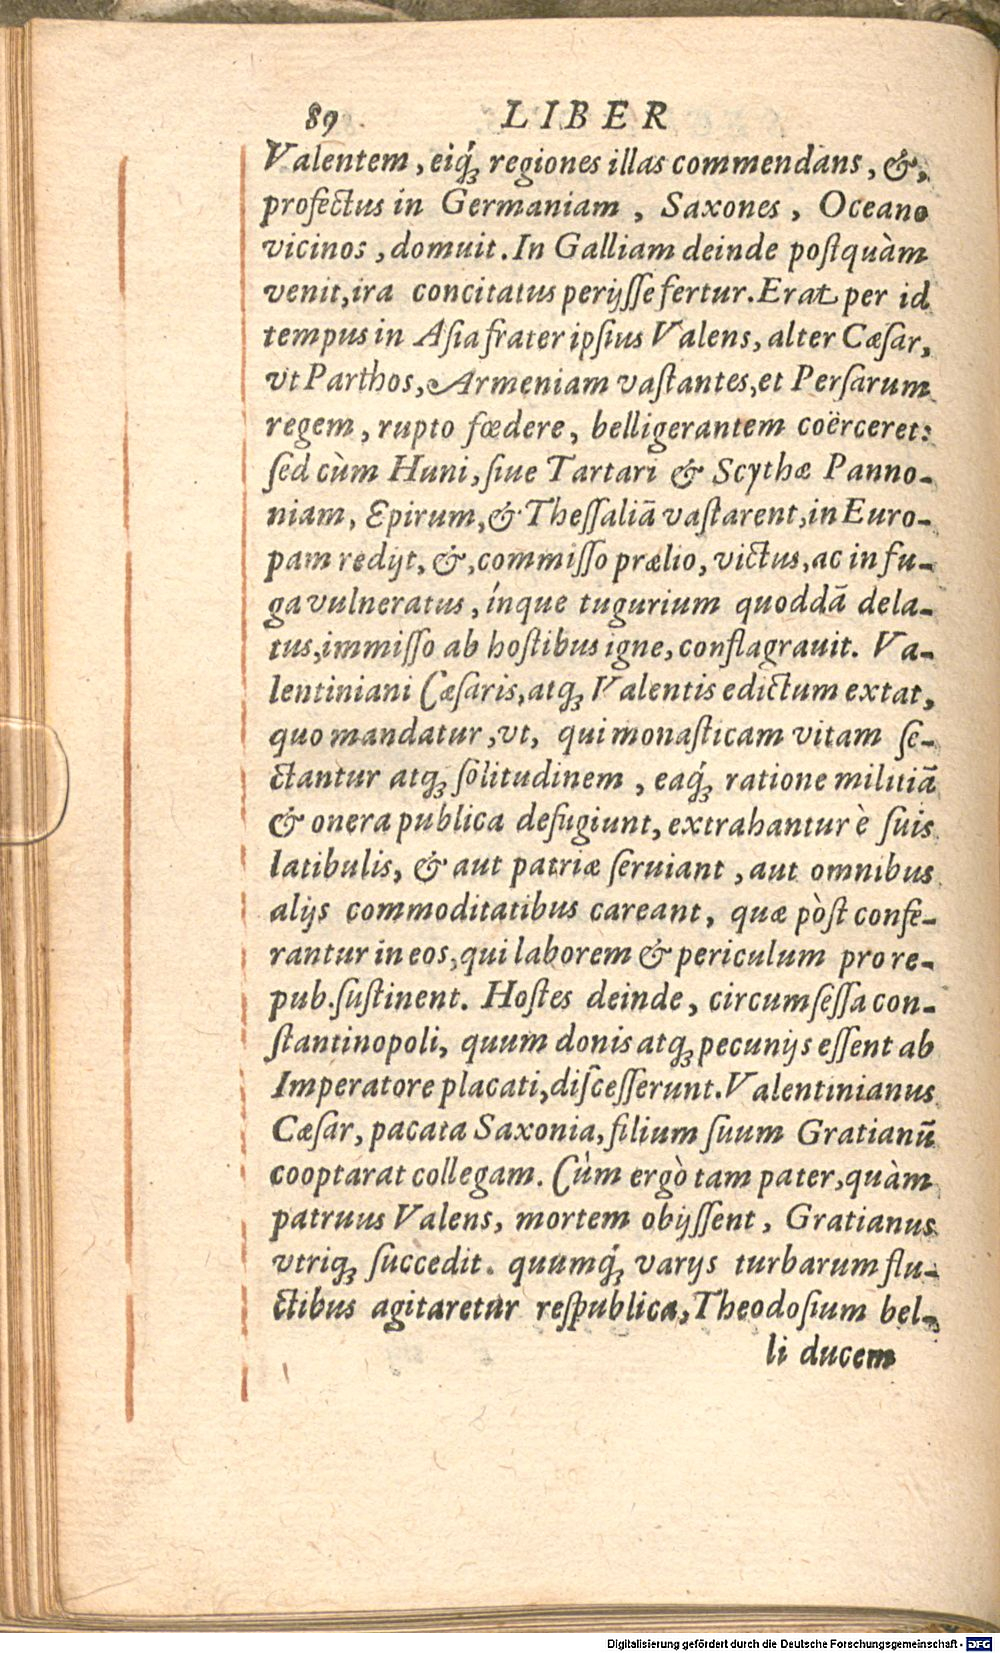 89 LIBER
Valentem, eiq́ꝫ regiones illas commendans, &,
profectus in Germaniam, Saxones, Oceano
vicinos, domuit. In Galliam deinde poſtquàm
venit, ira concitatus perijſſe fertur. Erat per id
tempus in Aſia frater ipſius Valens, alter Cæſar,
vt Parthos, Armeniam vaſtantes, et Perſarum
regem, rupto fœdere, belligerantem coërceret:
ſed cùm Huni, ſiue Tartari & Scythæ Panno-
niam, Epirum, & Theſſaliā vaſtarent, in Euro-
pam redijt, &, commiſſo prælio, victus, ac in fu-
ga vulneratus, ínque tugurium quoddā dela-
tus, immiſſo ab hoſtibus igne, conflagrauit. Va-
lentiniani Cæſaris, atqꝫ Valentis edictum extat,
quo mandatur, vt, qui monaſticam vitam ſe-
ctantur atqꝫ ſolitudinem, eaq́ꝫ ratione militiā
& onera publica defugiunt, extrahantur è ſuis
latibulis, & aut patriæ ſeruiant, aut omnibus
alijs commoditatibus careant, quæ pòſt confe-
rantur in eos, qui laborem & periculum pro re-
pub. ſuſtinent. Hoſtes deinde, circumſeſſa con-
ſtantinopoli, quum donis atqꝫ pecunijs eſſent ab
Imperatore placati, diſceſſerunt. Valentinianus
Cæſar, pacata Saxonia, filium ſuum Gratianū
cooptarat collegam. Cùm ergò tam pater, quàm
patruus Valens, mortem obijſſent, Gratianus
vtriqꝫ ſuccedit. quumq́ꝫ varijs turbarum flu-
ctibus agitaretur reſpublica, Theodoſium bel-
li ducem
Digitalisierung gefördert durch die Deutsche Forschungsgemeinschaft - DFG